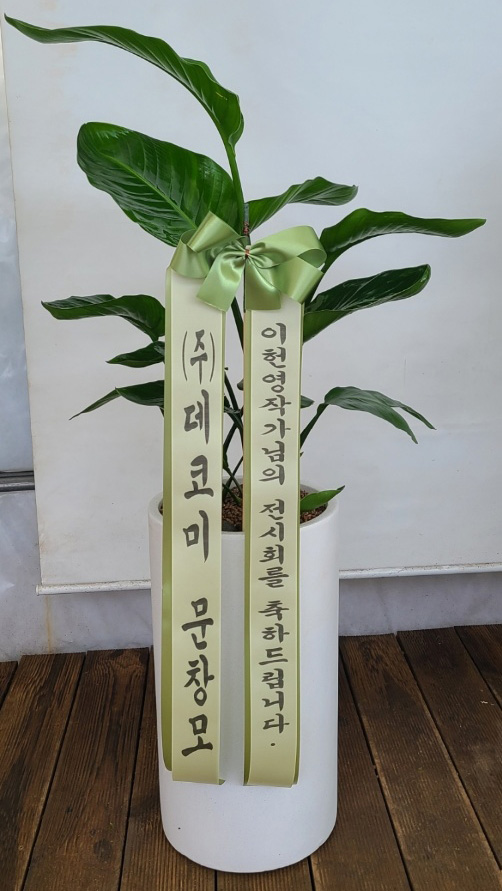 이헌영작가님의 전시회를 축하드립니다.
(주)데코미 문창모